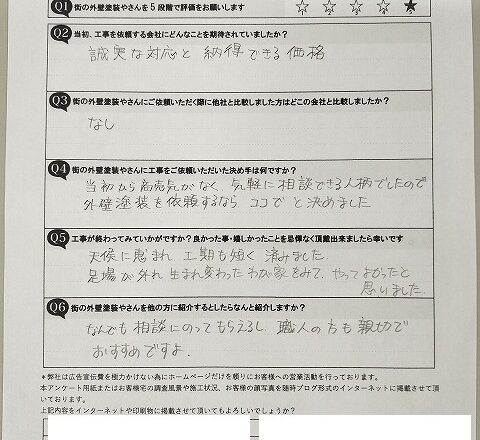 Q1 街の外壁塗装やさんを5段階で評価をお願いします
Q2 当初、工事を依頼する会社にどんなことを期待されていましたか?
誠実な対応と 納得できる価格
Q3 街の外壁塗装やさんにご依頼いただく際に他社と比較しました方はどこの会社と比較しましたか?
なし
Q4 街の外壁塗装やさんに工事をご依頼いただいた決め手は何ですか?
当初から商売気がなく、気軽に相談できる人柄でしたので
外壁塗装を依頼するなら ココで と決めました
Q5 工事が終わってみていかがですか?良かった事・嬉しかったことを忌憚なく頂戴出来ましたら幸いです
天候に恵まれ 工期も短く 済みました.
足場が外れ 生まれ変わったわが家をみて、やってよかったと
思いました.
Q6 街の外壁塗装やさんを他の方に紹介するとしたらなんと紹介しますか?
なんでも 相談にのってもらえるし 職人の方も 親切で
おすすめですよ.
*弊社は広告宣伝費を極力かけない為にホームページだけを頼りにお客様への営業活動を行っております。
本アンケート用紙またはお客様宅の調査風景や施工状況、お客様の顔写真を随時ブログ形式のインターネットに掲載させて頂
いております。
上記内容をインターネットや印刷物に掲載させて頂いてもよろしいでしょうか?